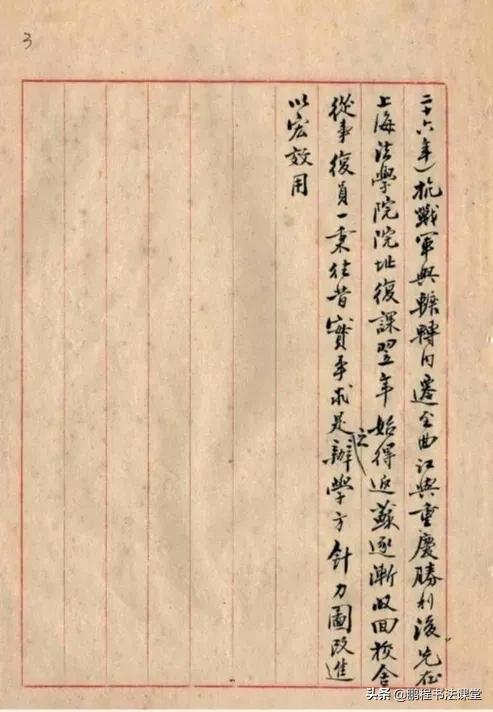 3
二十六年)抗戰軍興輾轉內遷至曲江與重慶勝利後先在
上海法學院院址復課翌年始得返蘇逐漸收回校舍
從事復員一秉往昔實事求是之辦學方針力圖改進
以宏效用
头条 @鹏程书法课堂